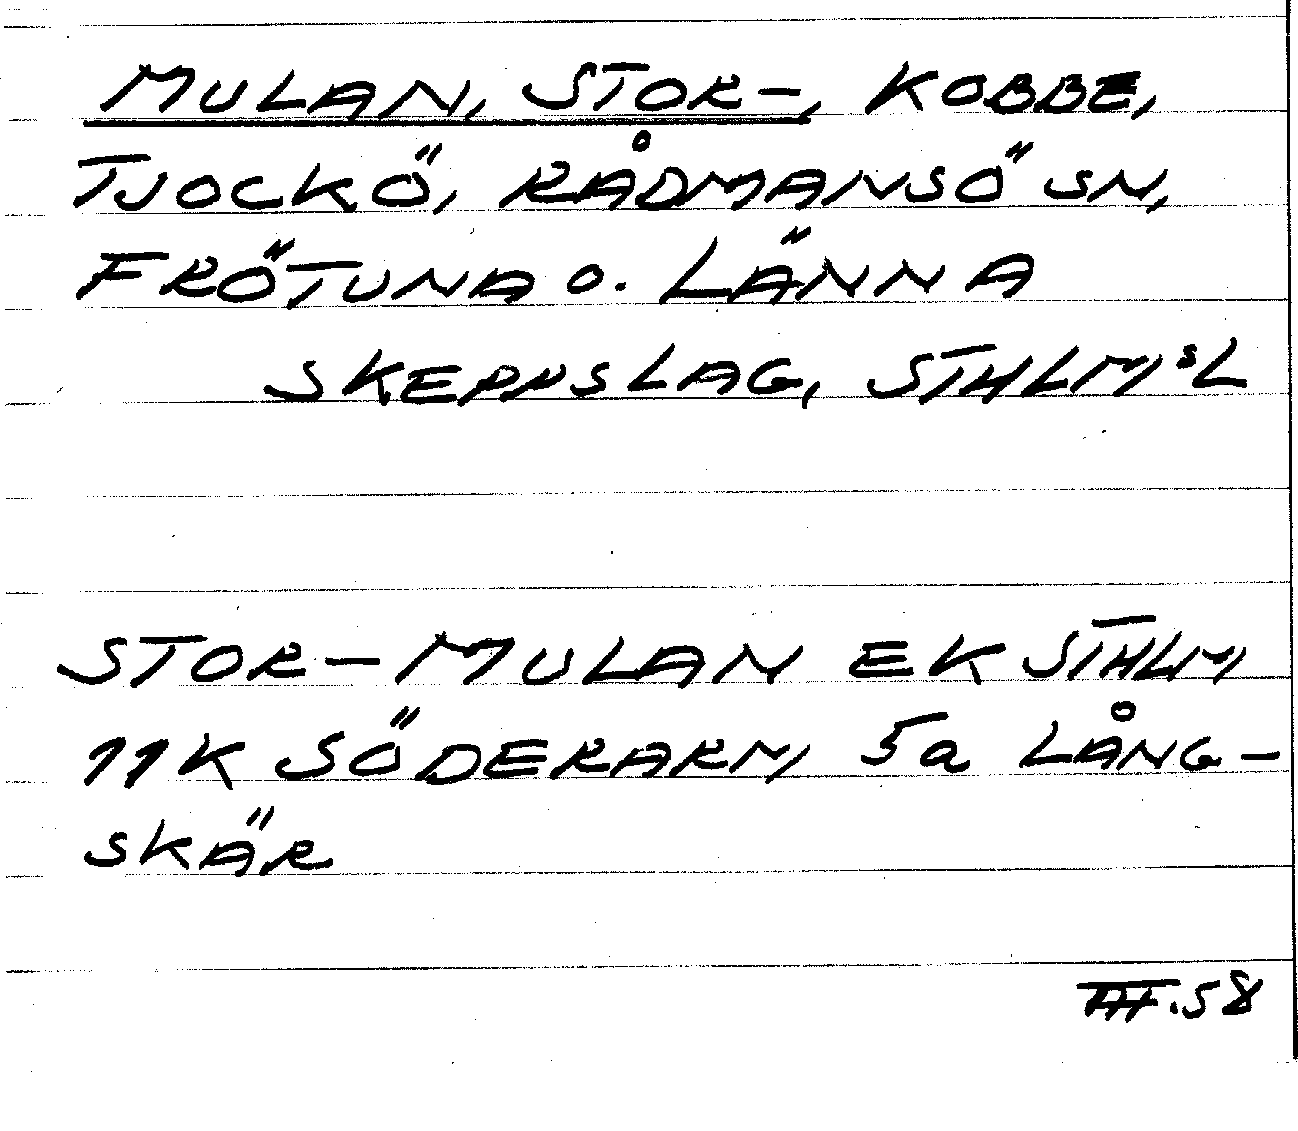 MULAN, STOR-, KOBBE,
TJOCKÖ, RÅDMANSÖ SN,
FRÖTUNA o. LÄNNA
SKEPPSLAG, STHLMSL
STOR-MULAN EK STHLM
11K SÖDERARM, 5a LÅNG-
SKÄR
.58